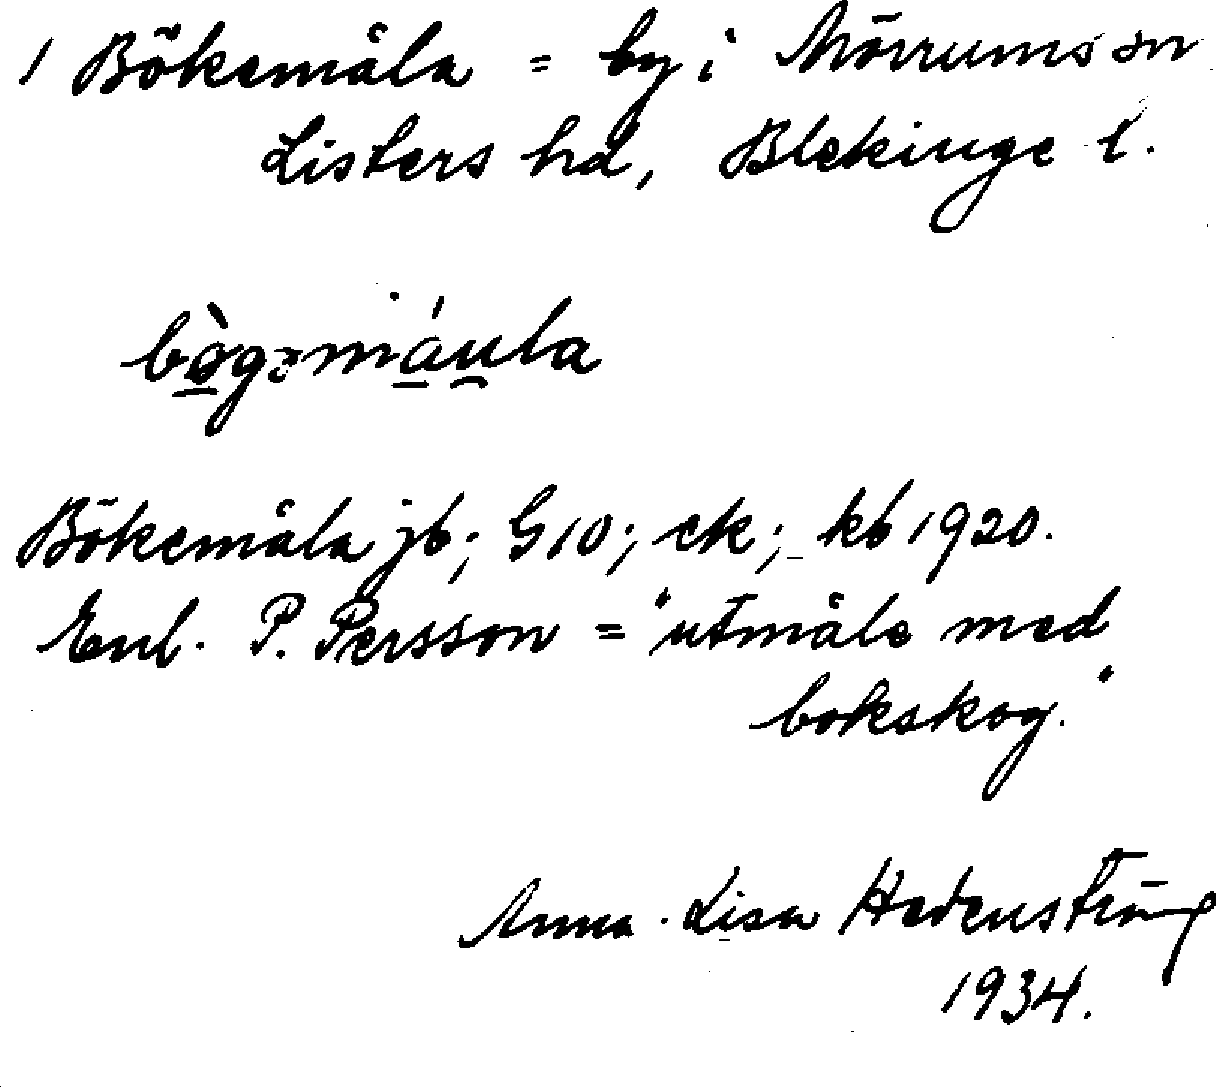 1 Bökemåla = by i Mörrums sn
Listers hd, Blekinge l.
bø̀gəmáu̯la
Bökemåla jb; G10; ek; kb 1920.
Enl. P. Persson = "utmåle med
bokskog."
Anna-Lisa Hedenström
1934.